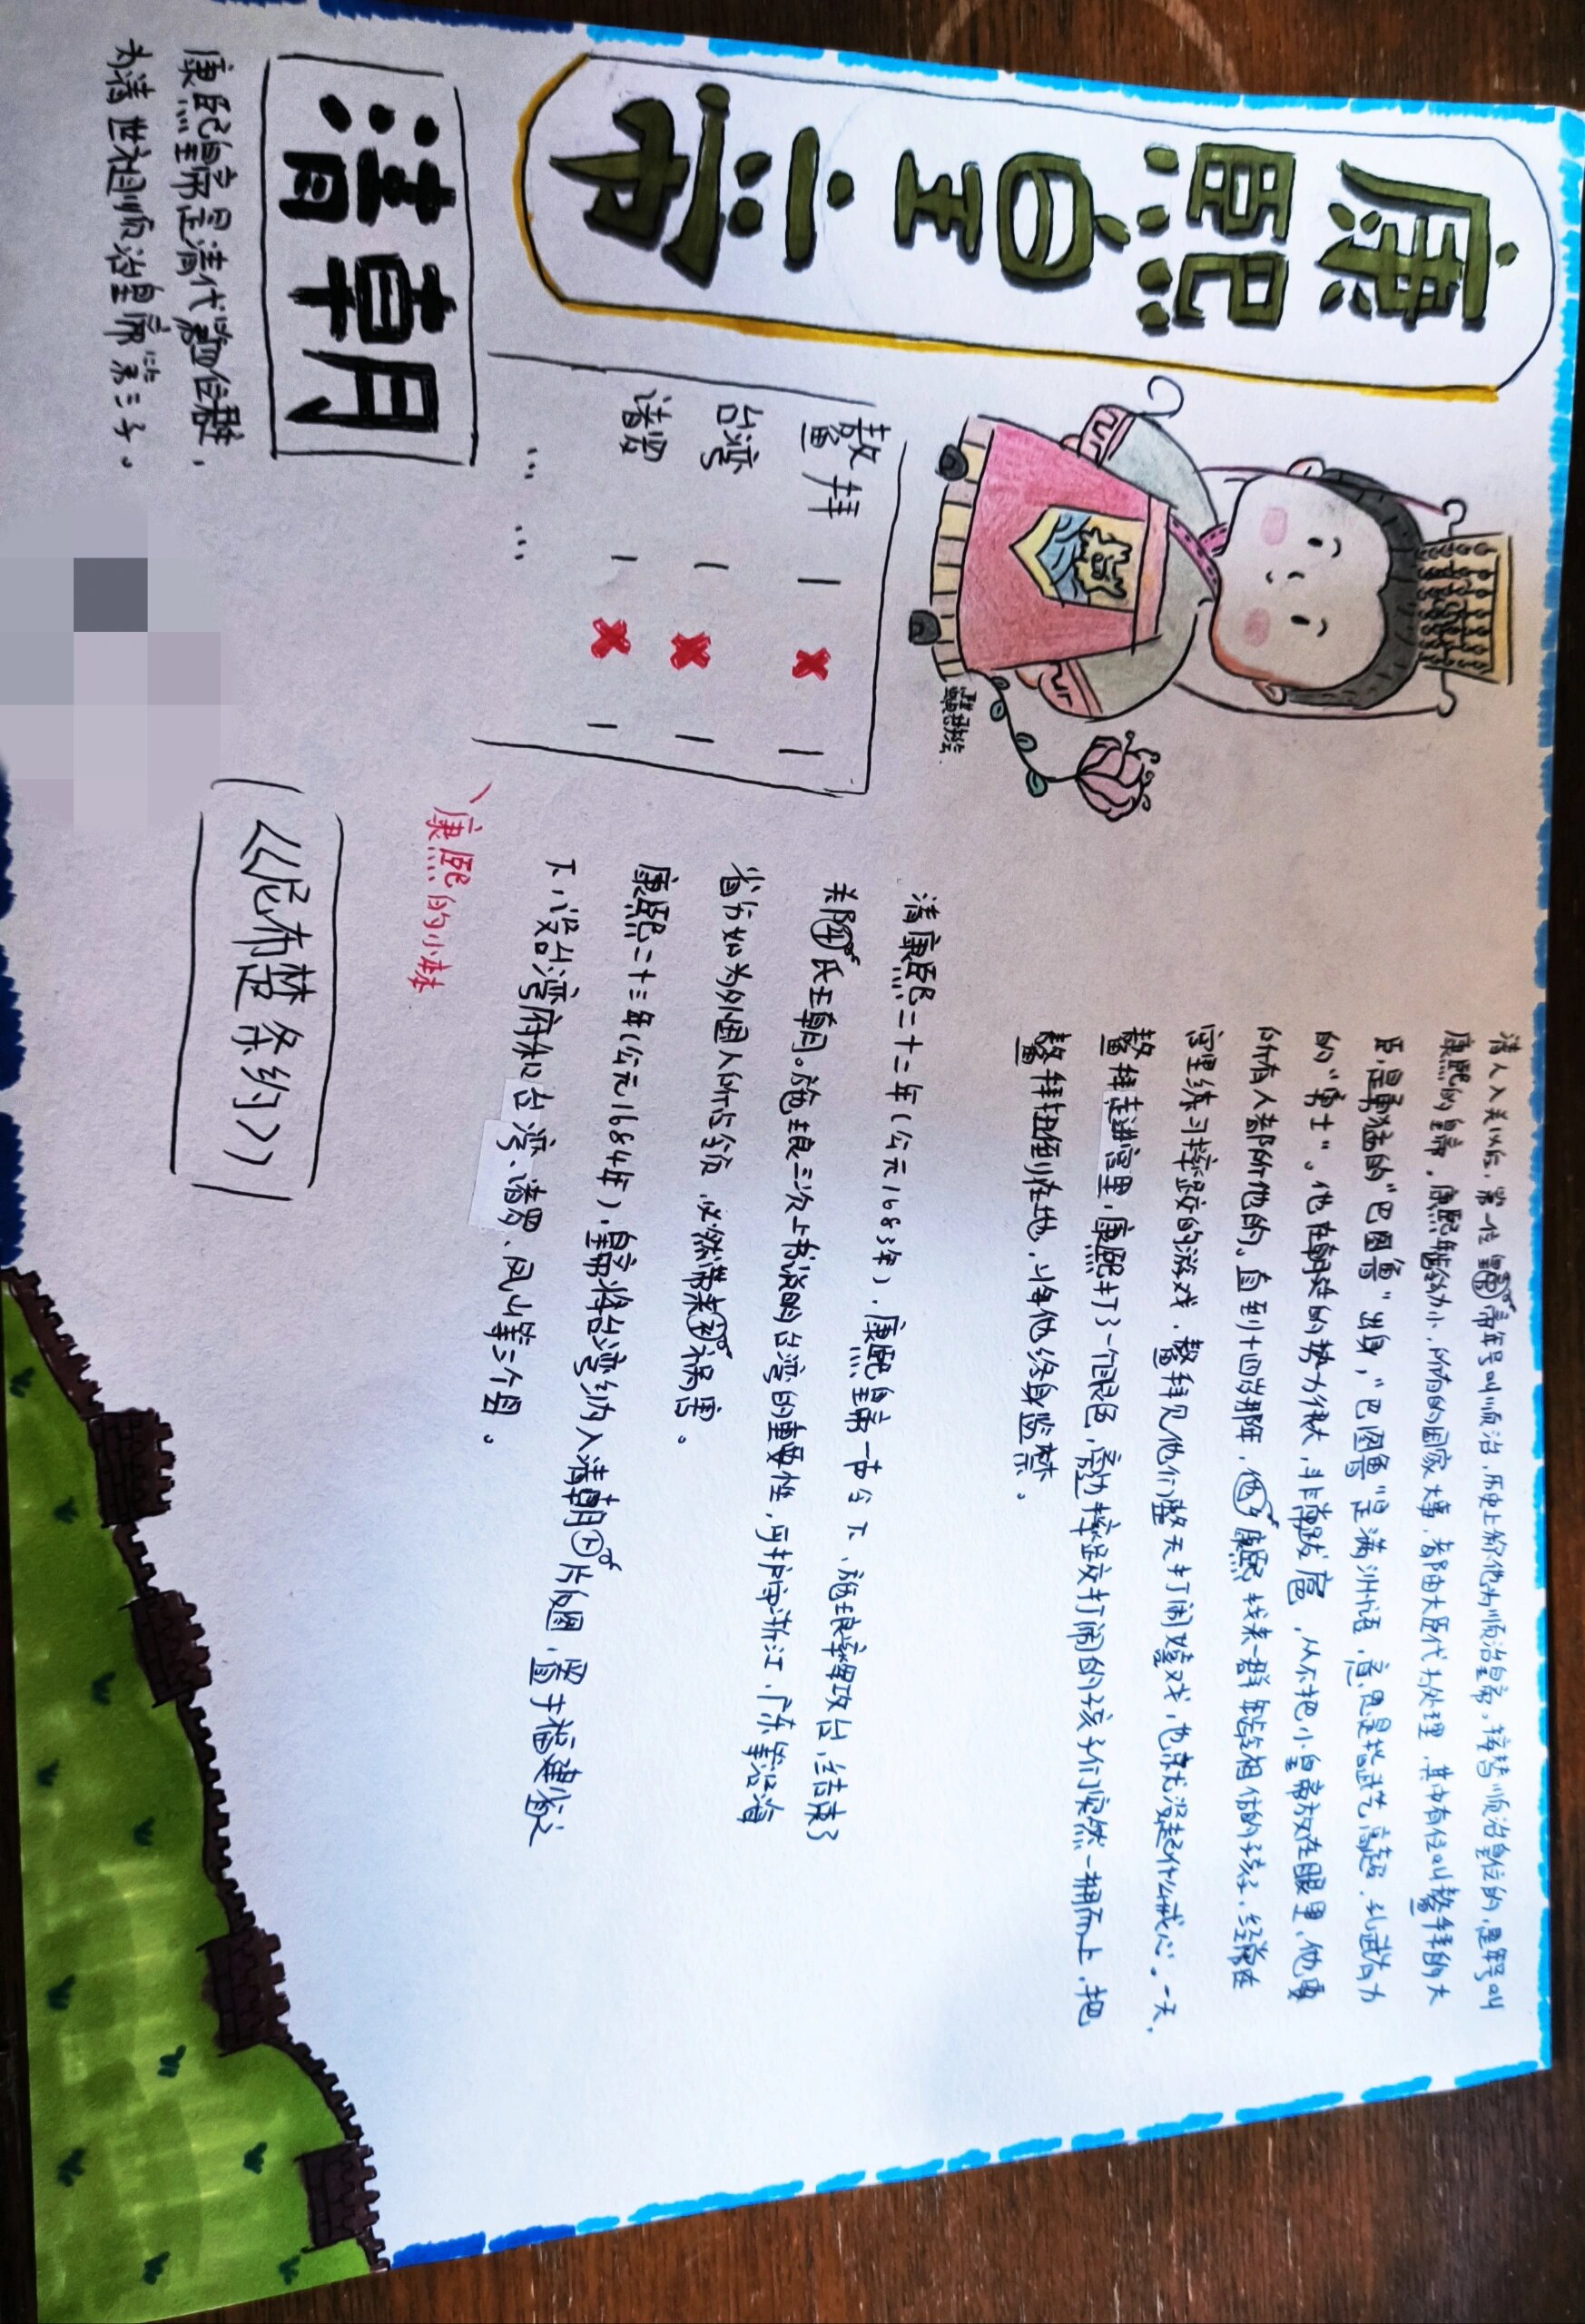 康熙皇帝
清人入关以后，第一位皇帝年号叫顺治，历史上称他为顺治皇帝。接替顺治皇位的，是年号叫
康熙的皇帝。康熙年龄幼小，所有的国家大事，都由大臣代为处理，其中有位叫鳌拜的大
臣，是勇猛的“巴图鲁”出身，“巴图鲁”是满洲语，意思是指武艺高超、孔武有力
的“勇士”。他在朝廷的势力很大，非常跋扈，从不把小皇帝放在眼里，他要
所有人都听他的。直到十四岁那年，康熙找来一群年龄相仿的孩子，经常在
宫里练习摔跤的游戏，鳌拜见他们整天打闹嬉戏，也就没起什么戒心。一天，
鳌拜走进宫里，康熙打了一个眼色，旁边摔跤打闹的孩子们突然一拥而上，把
鳌拜扭倒在地，将他终身监禁。
鳌拜 — ✖ —
台湾 — ✖ —
诸罗 — ✖ —
… …
康熙的小本本
清康熙二十二年（公元1683年），康熙皇帝一声令下，施琅率军攻台，结束了
郑氏王朝。施琅三次上书说明台湾的重要性，可护卫浙江、广东等沿海
省分如为外国人所占领，必然带来祸害。
康熙二十三年（公元1684年），皇帝将台湾纳入清朝版图，置于福建省之
下，设台湾府和台湾、诸罗、凤山等三个县。
清朝
康熙皇帝是清代第四位君主，
为清世祖顺治皇帝第三子。
《尼布楚条约》